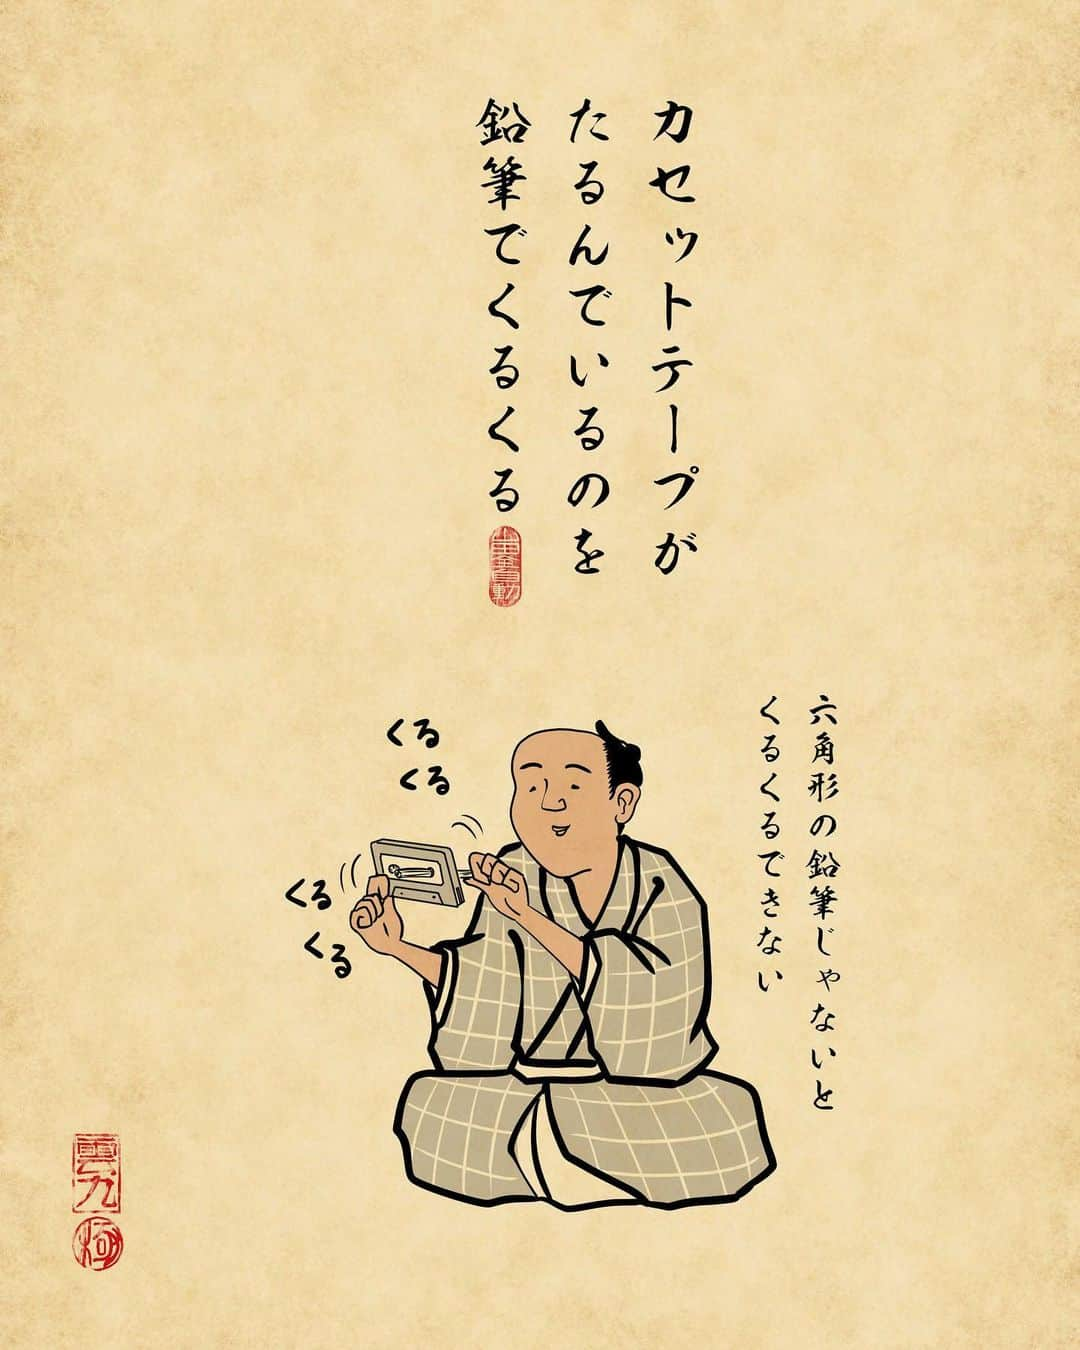 カセットテープが
たるんでいるのを
鉛筆でくるくる
六角形の鉛筆じゃないと
くるくるできない
くる
くる
くる
くる